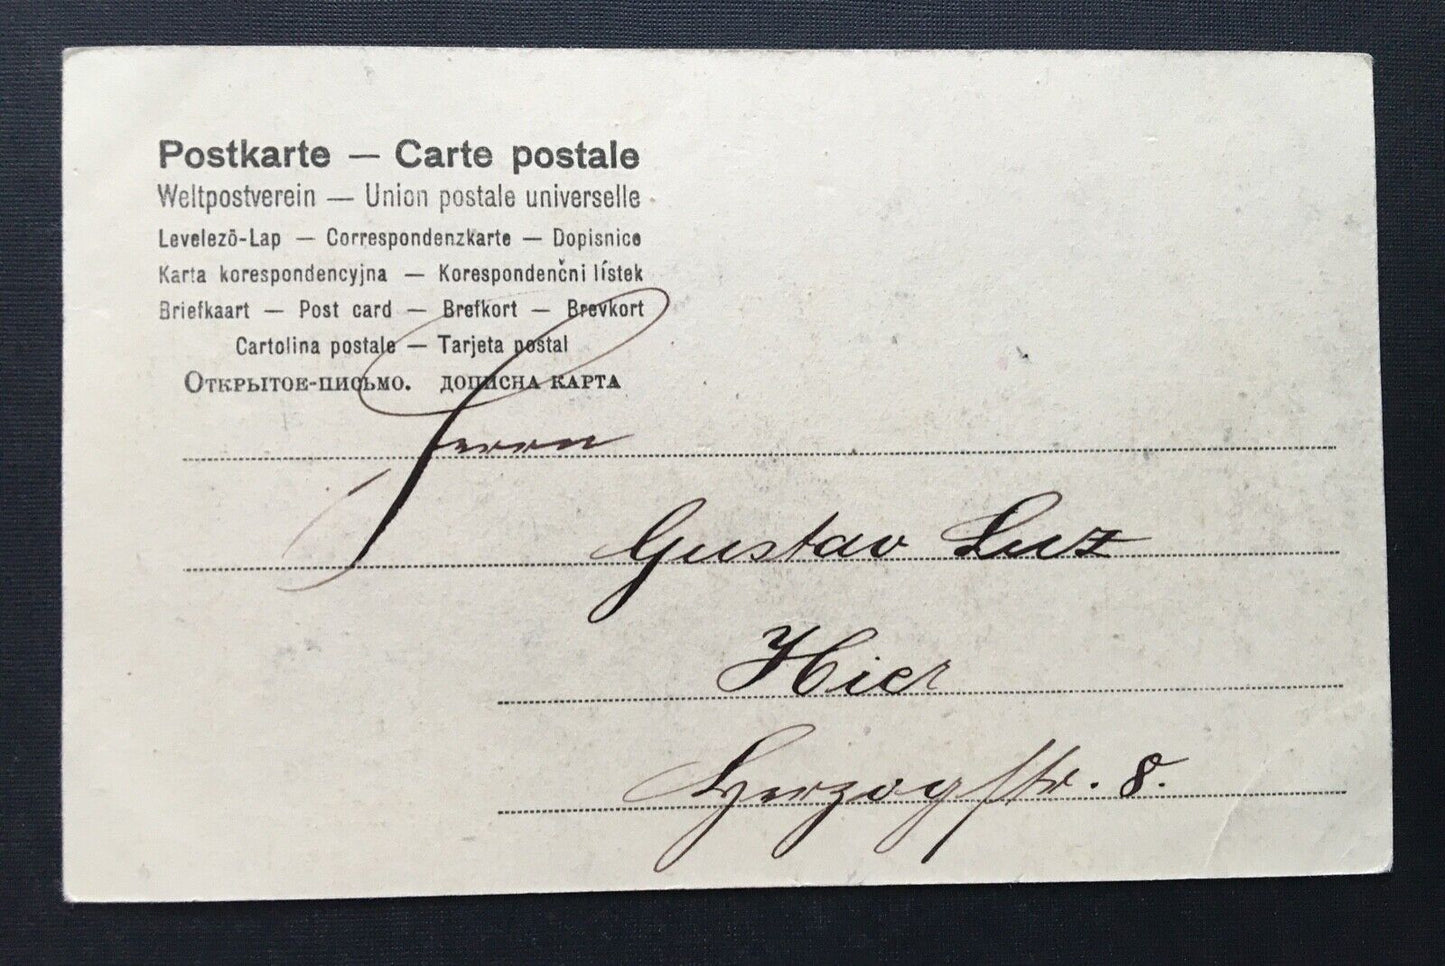 Postkarte — Carte postale
Weltpostverein — Union postale universelle
Levelező-Lap — Correspondenzkarte — Dopisnice
Karta korespondencyjna — Korespondenčni lístek
Briefkaart — Post card — Brefkort — Brevkort
Cartolina postale — Tarjeta postal
Открытое-письмо. дописна карта
Herrn
Gustav Luz
Hier
Herzogstr. 8.